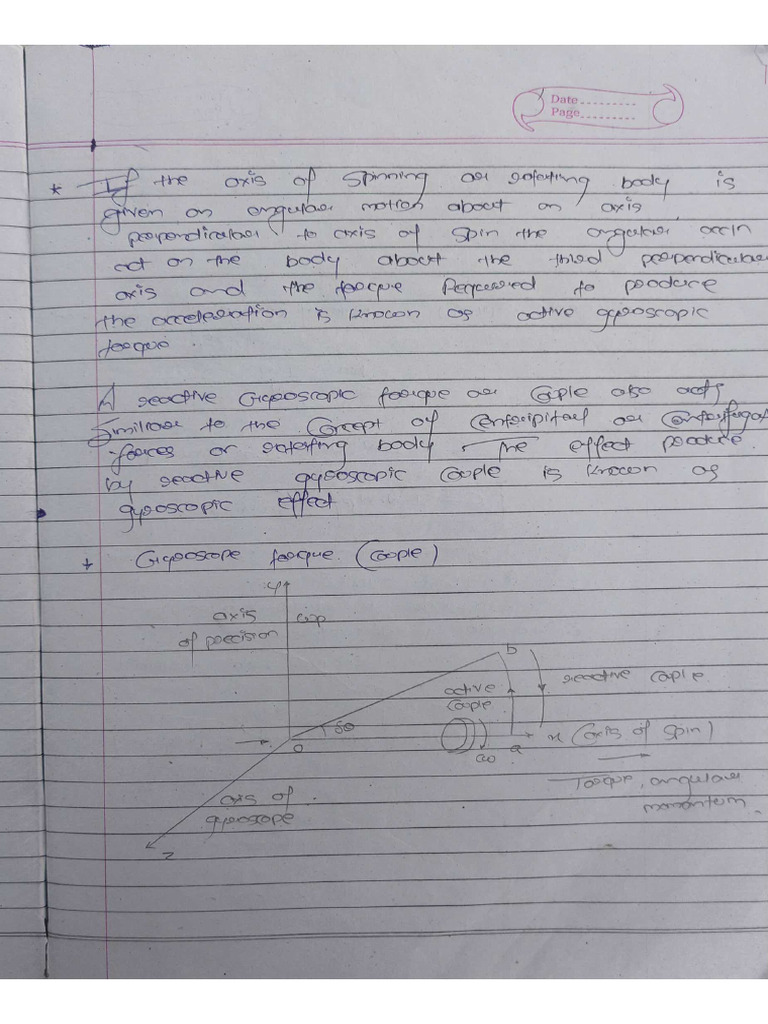 Date
Page
* If the axis of spinning or rotating body is
given an angular motion about an axis
perpendicular to axis of spin the angular accln
act on the body about the third perpendicular
axis and the torque Required to produce
the acceleration is known as active gyroscopic
torque.
A reactive Gyroscopic torque or Couple also acts
Similar to the Concept of Centripital or Centrifugal
forces or rotating body. The effect produce
by reactive gyroscopic couple is known as
gyroscopic effect
* Gyroscope torque (Couple)
y
axis ωp
of precision
b
active
couple
reactive couple
δθ
o
ω a x (axis of spin)
axis of
gyroscope
Torque, angular
momentum
z